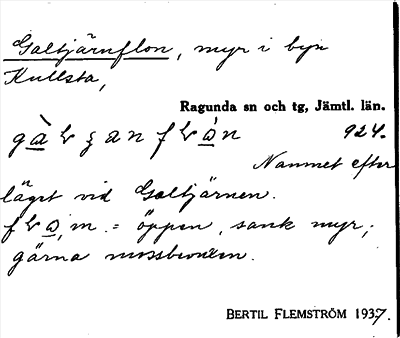 Galtjärnflon, myr i byn
Kullsta,
Ragunda sn och tg, Jämtl. län.
924.
Namnet efter
läget vid Galtjärnen.
m. = öppen, sank myr,
gärna mossbeväxen.
BERTIL FLEMSTRÖM 1937.